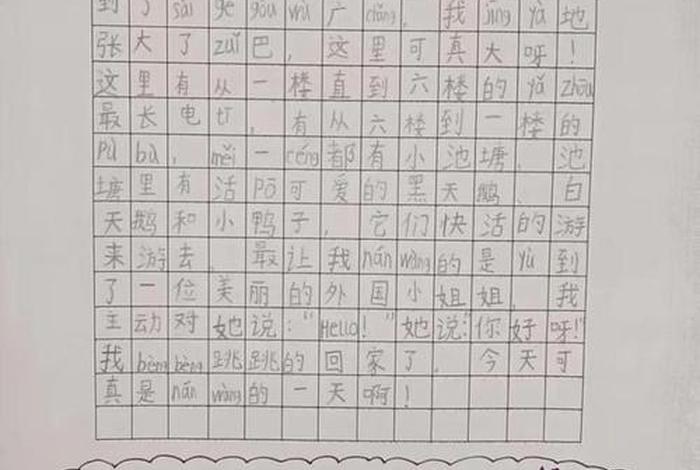 到了sài gē gòu wù广chǎng，我jīng yà地
张大了zuǐ巴，这里可真大呀！
这里有从一楼直到六楼的yǎ zhōu
最长电tī，有从六楼到一楼的
pù bù，měi一céng都有小池塘，池
塘里有活pō可爱的黑天鹅、白
天鹅和小鸭子，它们快活的游
来游去。最让我nán wàng的是yù到
了一位美丽的外国小姐姐，我
主动对她说："Hello！"她说："你好呀！"
我bèng bèng跳跳的回家了。今天可
真是nán wàng的一天啊！